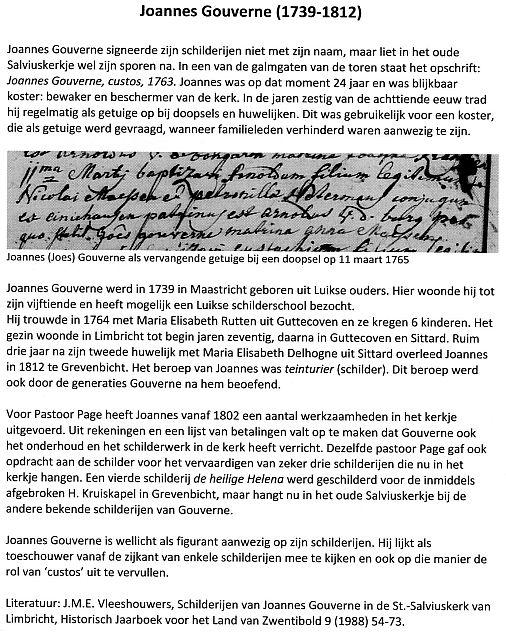 Joannes Gouverne (1739-1812)
Joannes Gouverne signeerde zijn schilderijen niet met zijn naam, maar liet in het oude
Salviuskerkje wel zijn sporen na. In een van de galmgaten van de toren staat het opschrift:
Joannes Gouverne, custos, 1763. Joannes was op dat moment 24 jaar en was blijkbaar
koster: bewaker en beschermer van de kerk. In de jaren zestig van de achttiende eeuw trad
hij regelmatig als getuige op bij doopsels en huwelijken. Dit was gebruikelijk voor een koster,
die als getuige werd gevraagd, wanneer familieleden verhinderd waren aanwezig te zijn.
Martij baptizavi filium
Nicolai Maessen et petronilla conjugum
est patrinus est arnoldus
gouverne matrina anna Maessen
Joannes (Joes) Gouverne als vervangende getuige bij een doopsel op 11 maart 1765
Joannes Gouverne werd in 1739 in Maastricht geboren uit Luikse ouders. Hier woonde hij tot
zijn vijftiende en heeft mogelijk een Luikse schilderschool bezocht.
Hij trouwde in 1764 met Maria Elisabeth Rutten uit Guttecoven en ze kregen 6 kinderen. Het
gezin woonde in Limbricht tot begin jaren zeventig, daarna in Guttecoven en Sittard. Ruim
drie jaar na zijn tweede huwelijk met Maria Elisabeth Delhogne uit Sittard overleed Joannes
in 1812 te Grevenbicht. Het beroep van Joannes was teinturier (schilder). Dit beroep werd
ook door de generaties Gouverne na hem beoefend.
Voor Pastoor Page heeft Joannes vanaf 1802 een aantal werkzaamheden in het kerkje
uitgevoerd. Uit rekeningen en een lijst van betalingen valt op te maken dat Gouverne ook
het onderhoud en het schilderwerk in de kerk heeft verricht. Dezelfde pastoor Page gaf ook
opdracht aan de schilder voor het vervaardigen van zeker drie schilderijen die nu in het
kerkje hangen. Een vierde schilderij de heilige Helena werd geschilderd voor de inmiddels
afgebroken H. Kruiskapel in Grevenbicht, maar hangt nu in het oude Salviuskerkje bij de
andere bekende schilderijen van Gouverne.
Joannes Gouverne is wellicht als figurant aanwezig op zijn schilderijen. Hij lijkt als
toeschouwer vanaf de zijkant van enkele schilderijen mee te kijken en ook op die manier de
rol van ‘custos’ uit te vervullen.
Literatuur: J.M.E. Vleeshouwers, Schilderijen van Joannes Gouverne in de St.-Salviuskerk van
Limbricht, Historisch Jaarboek voor het Land van Zwentibold 9 (1988) 54-73.